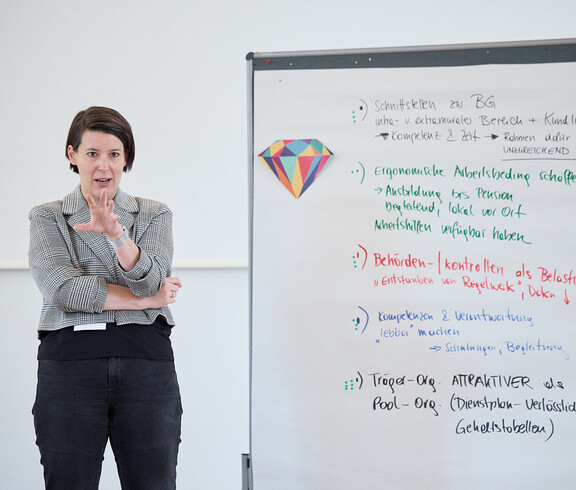 Schnittstellen zu BG
intra- u. extramurales Bereich +
→ Kompetenz & Zeit → Rahmen dafür
UNZUREICHEND
Ergonomische Arbeitsbeding schaffe
→ Ausbildung bis Pension
Begleitend, lokal vor Ort
Arbeitshilfen verfügbar haben
Behörden-/kontrollen als Belast
"Entstauben von Regelwerk", Doku ↓
Kompetenzen & Verantwortung
"lebbar" machen
→ Schulungen, Begleitung
Träger-Org. ATTRAKTIVER als
Pool-Org. (Dienstplan-Verlässlic
Gehaltstabellen)